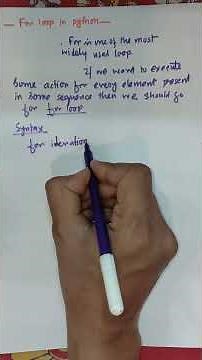 — For loop in python —
. For is one of the most
widely used loop
If we want to execute
some action for every element present
in some sequence then we should go
for for loop
Syntax
for iteration